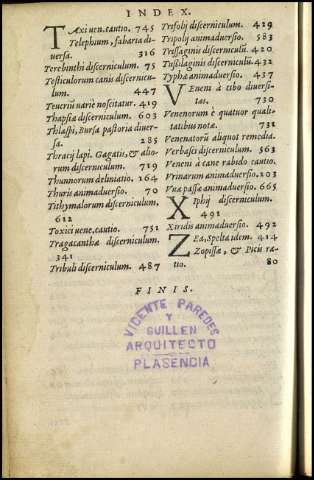 INDEX.
TAxi uen. cautio. 745
Telephium, fabaria di-
uersa. 316
Terebinthi discerniculum. 75
Testiculorum canis discernicu-
lum. 447
Teucriũ uariè noscitatur. 419
Thapsiæ discerniculum. 603
Thlaspi, Bursa pastoria diuer-
sa. 285
Thracij lapi. Gagatis, & alio-
rum discerniculum. 719
Thunnorum deliniatio. 164
Thuris animaduersio. 70
Tithymalorum discerniculum.
612
Toxici uene. cautio. 751
Tragacantha discerniculum.
341
Tribuli discerniculum. 487
Trifolij discerniculum. 429
Tripolij animaduersio. 583
Trissaginis discerniculũ. 420
Tussilaginis discerniculũ. 432
Typhæ animaduersio. 437
VEneni à cibo diuersi-
tas. 730
Venenorum è quatuor quali
tatibus notæ. 731
Venenatorũ aliquot remedia.
Verbasci discerniculum. 563
Veneni à cane rabido cautio.
Vrinarum animaduersio. 203
Vuæ passæ animaduersio. 665
XIphij discerniculum.
491
Xiridis animaduersio. 492
ZEa, Spelta idem. 414
Zopissæ, & Picis ra-
tio. 80
FINIS.
VICENTE PAREDES
Y
GUILLEN
ARQUITECTO
PLASENCIA